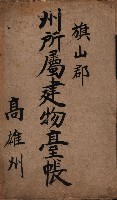 旗山郡
州所屬建物臺帳
高雄州